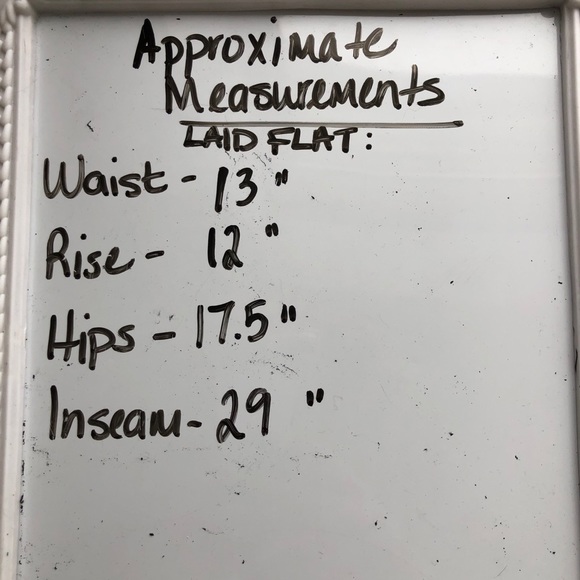 Approximate
Measurements
LAID FLAT:
Waist - 13"
Rise - 12"
Hips - 17.5"
Inseam - 29"